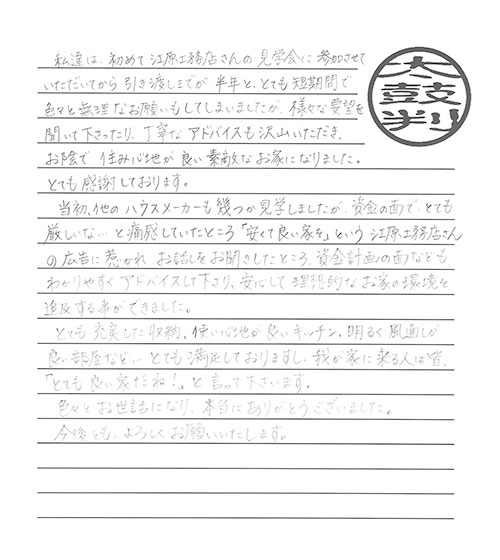 私達は、初めて江原工務店さんの見学会に参加させて
いただいてから引き渡しまでが半年と、とても短期間で
色々と無理なお願いもしてしまいましたが、様々な要望を
聞いて下さったり、丁寧なアドバイスも沢山いただき、
お陰で住み心地が良い素敵なお家になりました。
とても感謝しております。
当初、他のハウスメーカーも幾つか見学しましたが、資金の面で、とても
厳しいな…と痛感していたところ「安くて良い家を」という江原工務店さん
の広告に惹かれ、お話しをお聞きしたところ、資金計画の面なども
わかりやすくアドバイスして下り、安心して理想的なお家の環境を
追及する事ができました。
とても充実した収納、使い心地が良いキッチン、明るく風通しが
良い部屋など… とても満足しておりますし、我が家に来る人は皆、
「とても良い家だね！」と言って下さいます。
色々とお世話になり、本当にありがとうございました。
今後とも、よろしくお願いいたします。
太鼓判